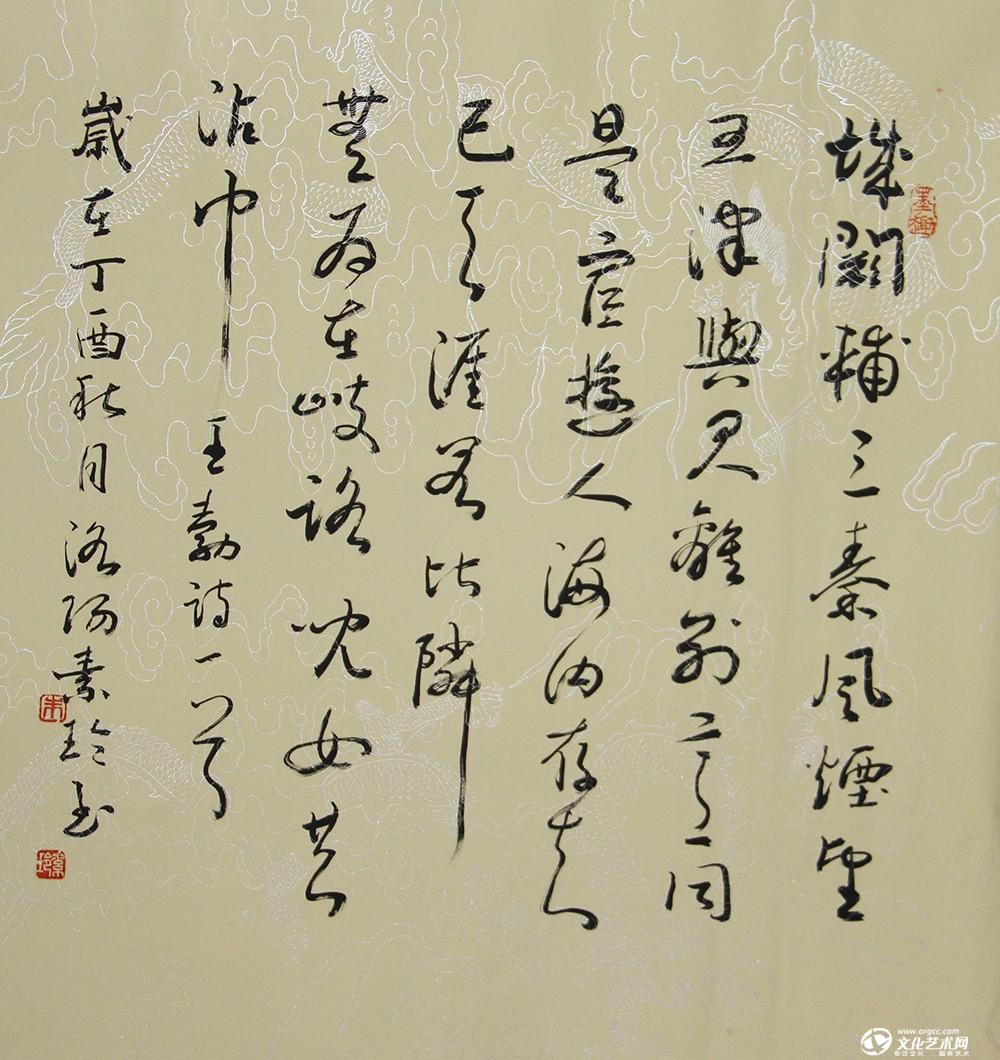 城闕輔三秦風煙望
五津與君離別意同
是宦遊人海內存知
己天涯若比鄰
無為在岐路兒女共
沾巾 王勃詩一首
歲在丁酉秋月洛陽素玲書
墨梅
朱
素玲
www.orgcc.com
文化艺术网
专注文化 服务艺术